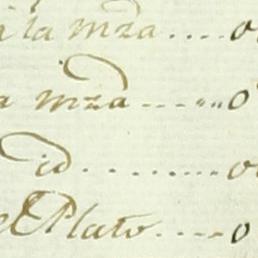 la mza.... 0
a mza...... 0
id......... 0
el Plato..... 0